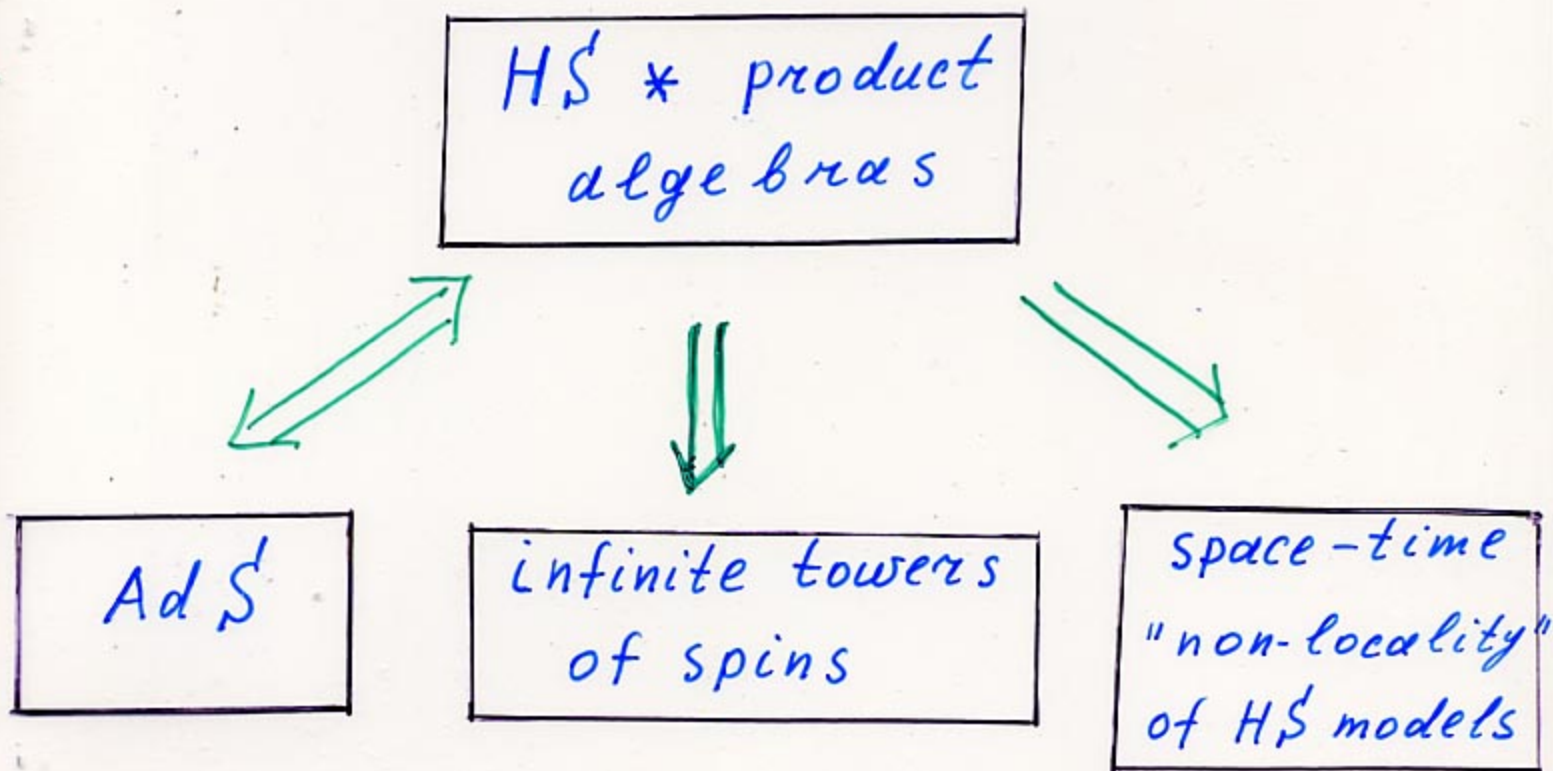 HS * product
algebras
AdS
infinite towers
of spins
space-time
"non-locality"
of HS models